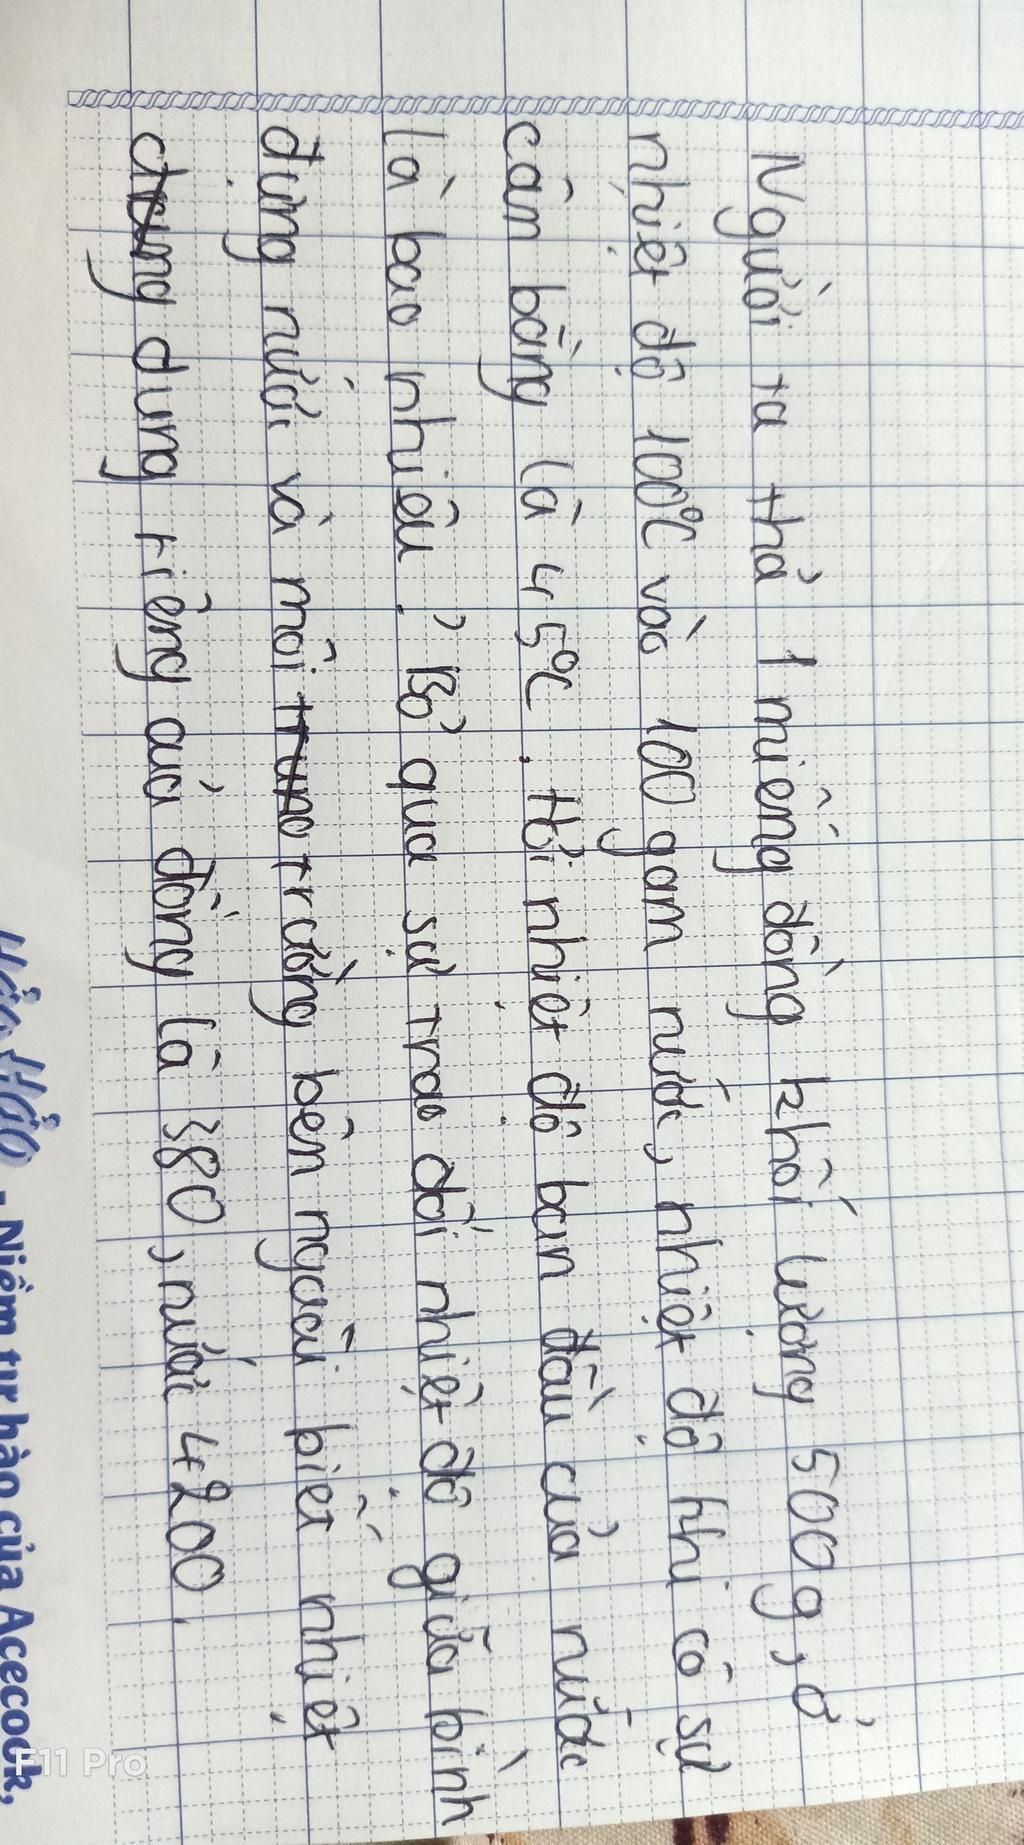 Người ta thả 1 miếng đồng khối lượng 500g, ở
nhiệt độ 100°C vào 100 gam nước, nhiệt độ khi có sự
cân bằng là 45°C. Hỏi nhiệt độ ban đầu của nước
là bao nhiêu? Bỏ qua sự trao đổi nhiệt độ giữa bình
đựng nước và môi trường bên ngoài biết nhiệt
dung riêng của đồng là 380, nước 4200.
Hảo Hảo - Niềm tự hào của Acecook,
F11 Pro